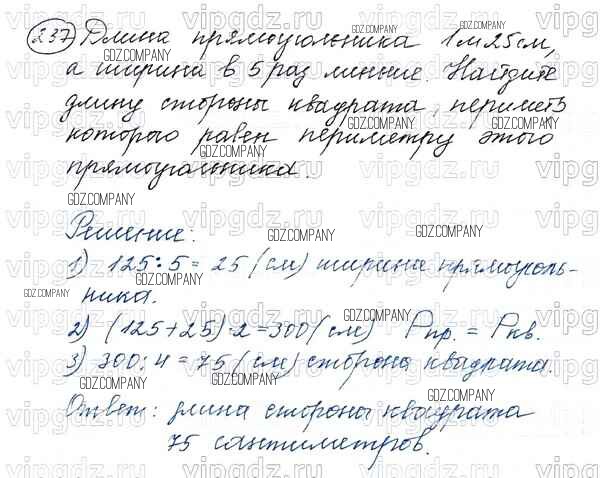 237 Длина прямоугольника 1м 25см,
а ширина в 5 раз меньше. Найдите
длину стороны квадрата, периметр
которого равен периметру этого
прямоугольника.
Решение:
1) 125:5 = 25 (см) ширина прямоуголь-
ника.
2) (125+25)·2=300 (см) Рпр. = Ркв.
3) 300:4 = 75 (см) сторона квадрата.
Ответ: длина стороны квадрата
75 сантиметров.
vipgdz.ru
GDZ.COMPANY